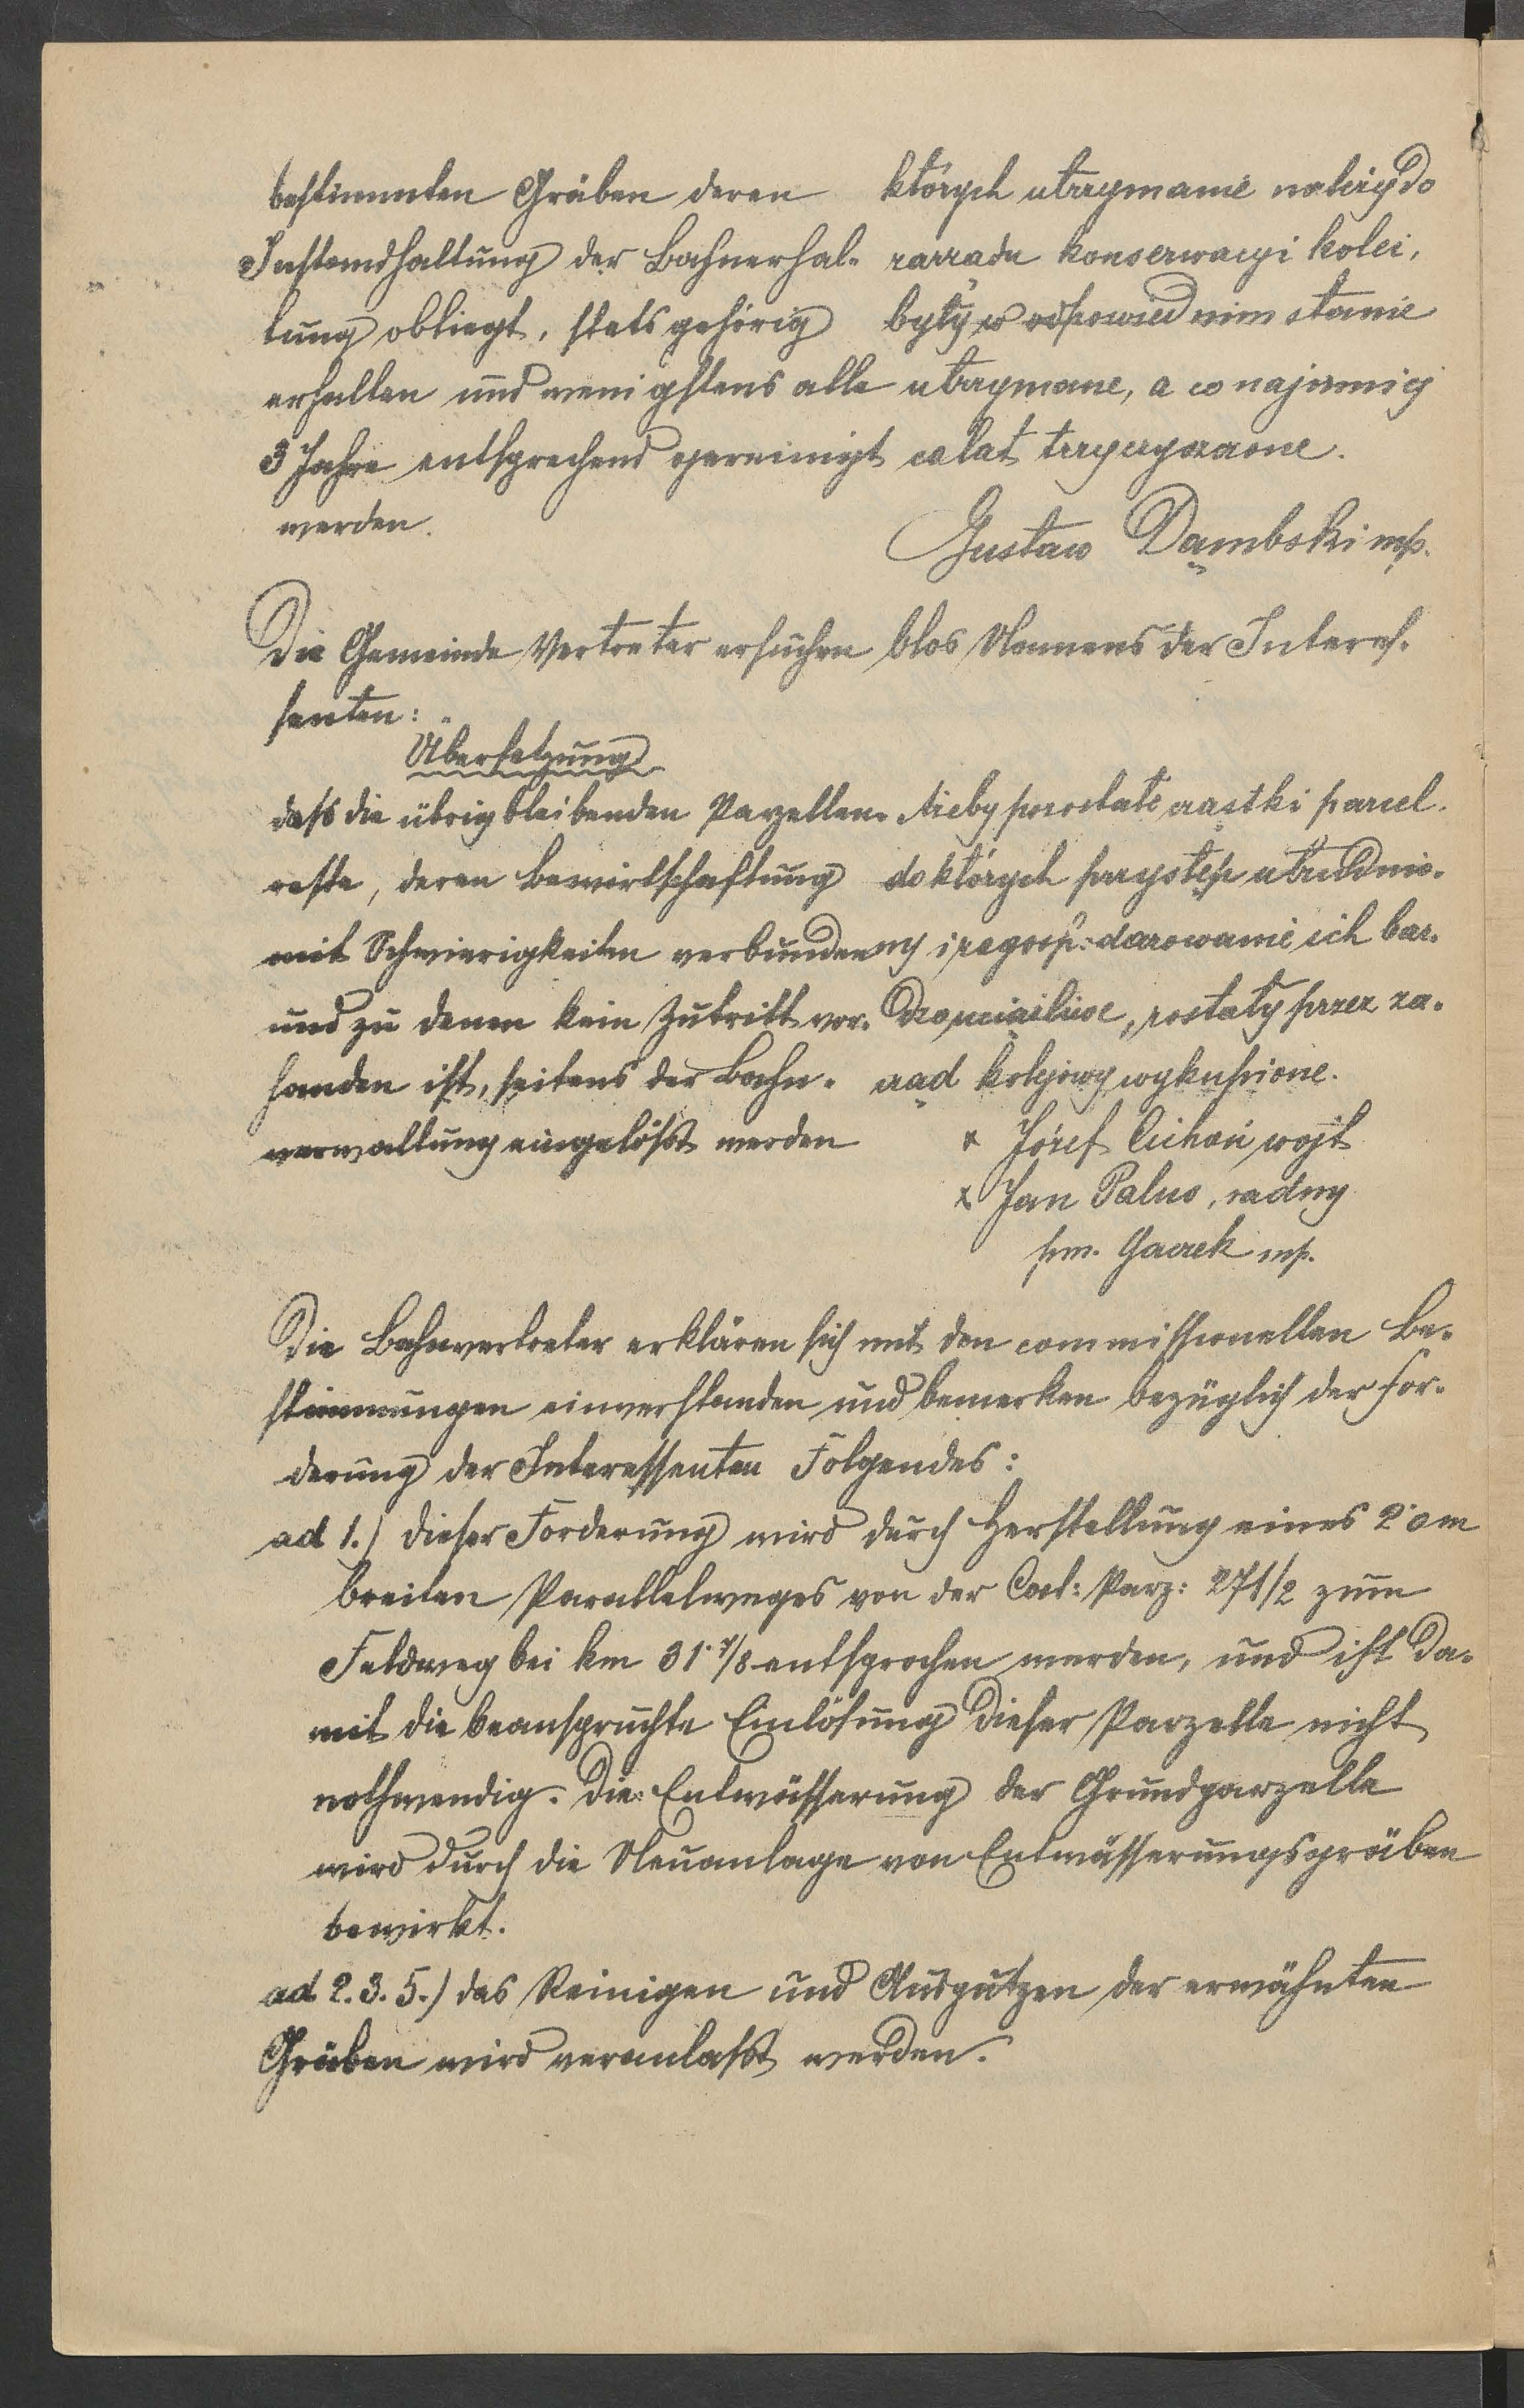 bestimmten Gräben deren
Instandhaltung der Bahnerhal-
tung obliegt, stets gehörig
erhalten und wenigstens alle
3 Jahre entsprechend gereinigt
werden.
których utrzymanie należy do
zarządu konserwacyi kolei,
były w odpowiednim stanie
utrzymane, a co najmniej
co lat trzy czyszczone.
Gustaw Dąmbski mp.
Die Gemeinde Vertreter ersuchen blos Namens der Interes-
senten:
Übersetzung
dass die übrigbleibenden Parzellen-
reste, deren Bewirtschaftung
mit Schwierigkeiten verbunden
und zu denen kein Zutritt vor-
handen ist, seitens der Bahn-
verwaltung eingelösst werden
Ażeby pozostałe cząstki parcel
do których przystęp utrudnio-
ny i zagosp: darowanie ich bar-
dzo uciążliwe, zostały przez za-
rząd kolejowy wykupione.
x Józef Cichoń wójt
x Jan Palus, radny
pm. Gacek mp.
Die Bahnvertreter erklären sich mit den commissionellen Be-
stimmungen einverstanden und bemerken bezüglich der For-
derung der Interessenten Folgendes:
ad 1.) dieser Forderung wird durch Herstellung eines 2·0m
breiten Parallelweges von der Cat: Parz: 271/2 zum
Feldweg bei km 31·7/8 entsprochen werden, und ist da-
mit die beanspruchte Einlösung dieser Parzelle nicht
nothwendig. Die Entwässerung der Grundparzelle
wird durch die Neuanlage von Entwässerungsgräben
bewirkt.
ad 2. 3. 5.) das Reinigen und Ausputzen der erwähnten
Gräben wird veranlasst werden.